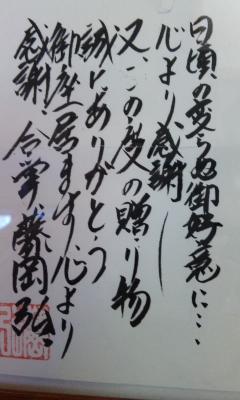 日頃の変らぬ御好意に…
心より感謝
又、この度の贈り物
誠にありがとう
御座居ます心より
感謝、合掌、藤岡弘、